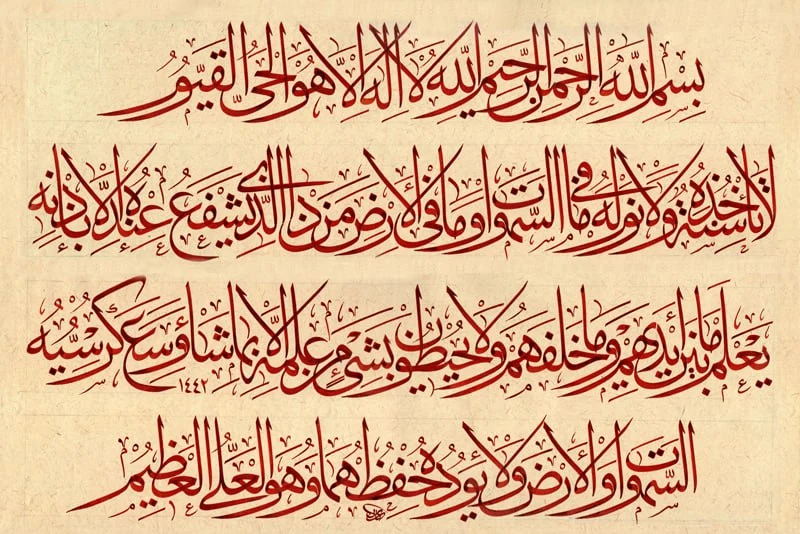 بِسْمِ اللّٰهِ الرَّحْمٰنِ الرَّحِيْمِ اَللّٰهُ لَا اِلٰهَ اِلَّا هُوَ الْحَیُّ الْقَیُّوْمُ
لَا تَاْخُذُهٗ سِنَةٌ وَّلَا نَوْمٌ لَهٗ مَا فِی السَّمٰوٰتِ وَمَا فِی الْاَرْضِ مَنْ ذَا الَّذِیْ یَشْفَعُ عِنْدَهٗ اِلَّا بِاِذْنِهٖ
یَعْلَمُ مَا بَیْنَ اَیْدِیْهِمْ وَمَا خَلْفَهُمْ وَلَا یُحِیْطُوْنَ بِشَیْءٍ مِّنْ عِلْمِهٖ اِلَّا بِمَا شَآءَ وَسِعَ كُرْسِیُّهُ
١٤٤٢
السَّمٰوٰتِ وَالْاَرْضَ وَلَا یَـُٔوْدُهٗ حِفْظُهُمَا وَهُوَ الْعَلِیُّ الْعَظِیْمُ